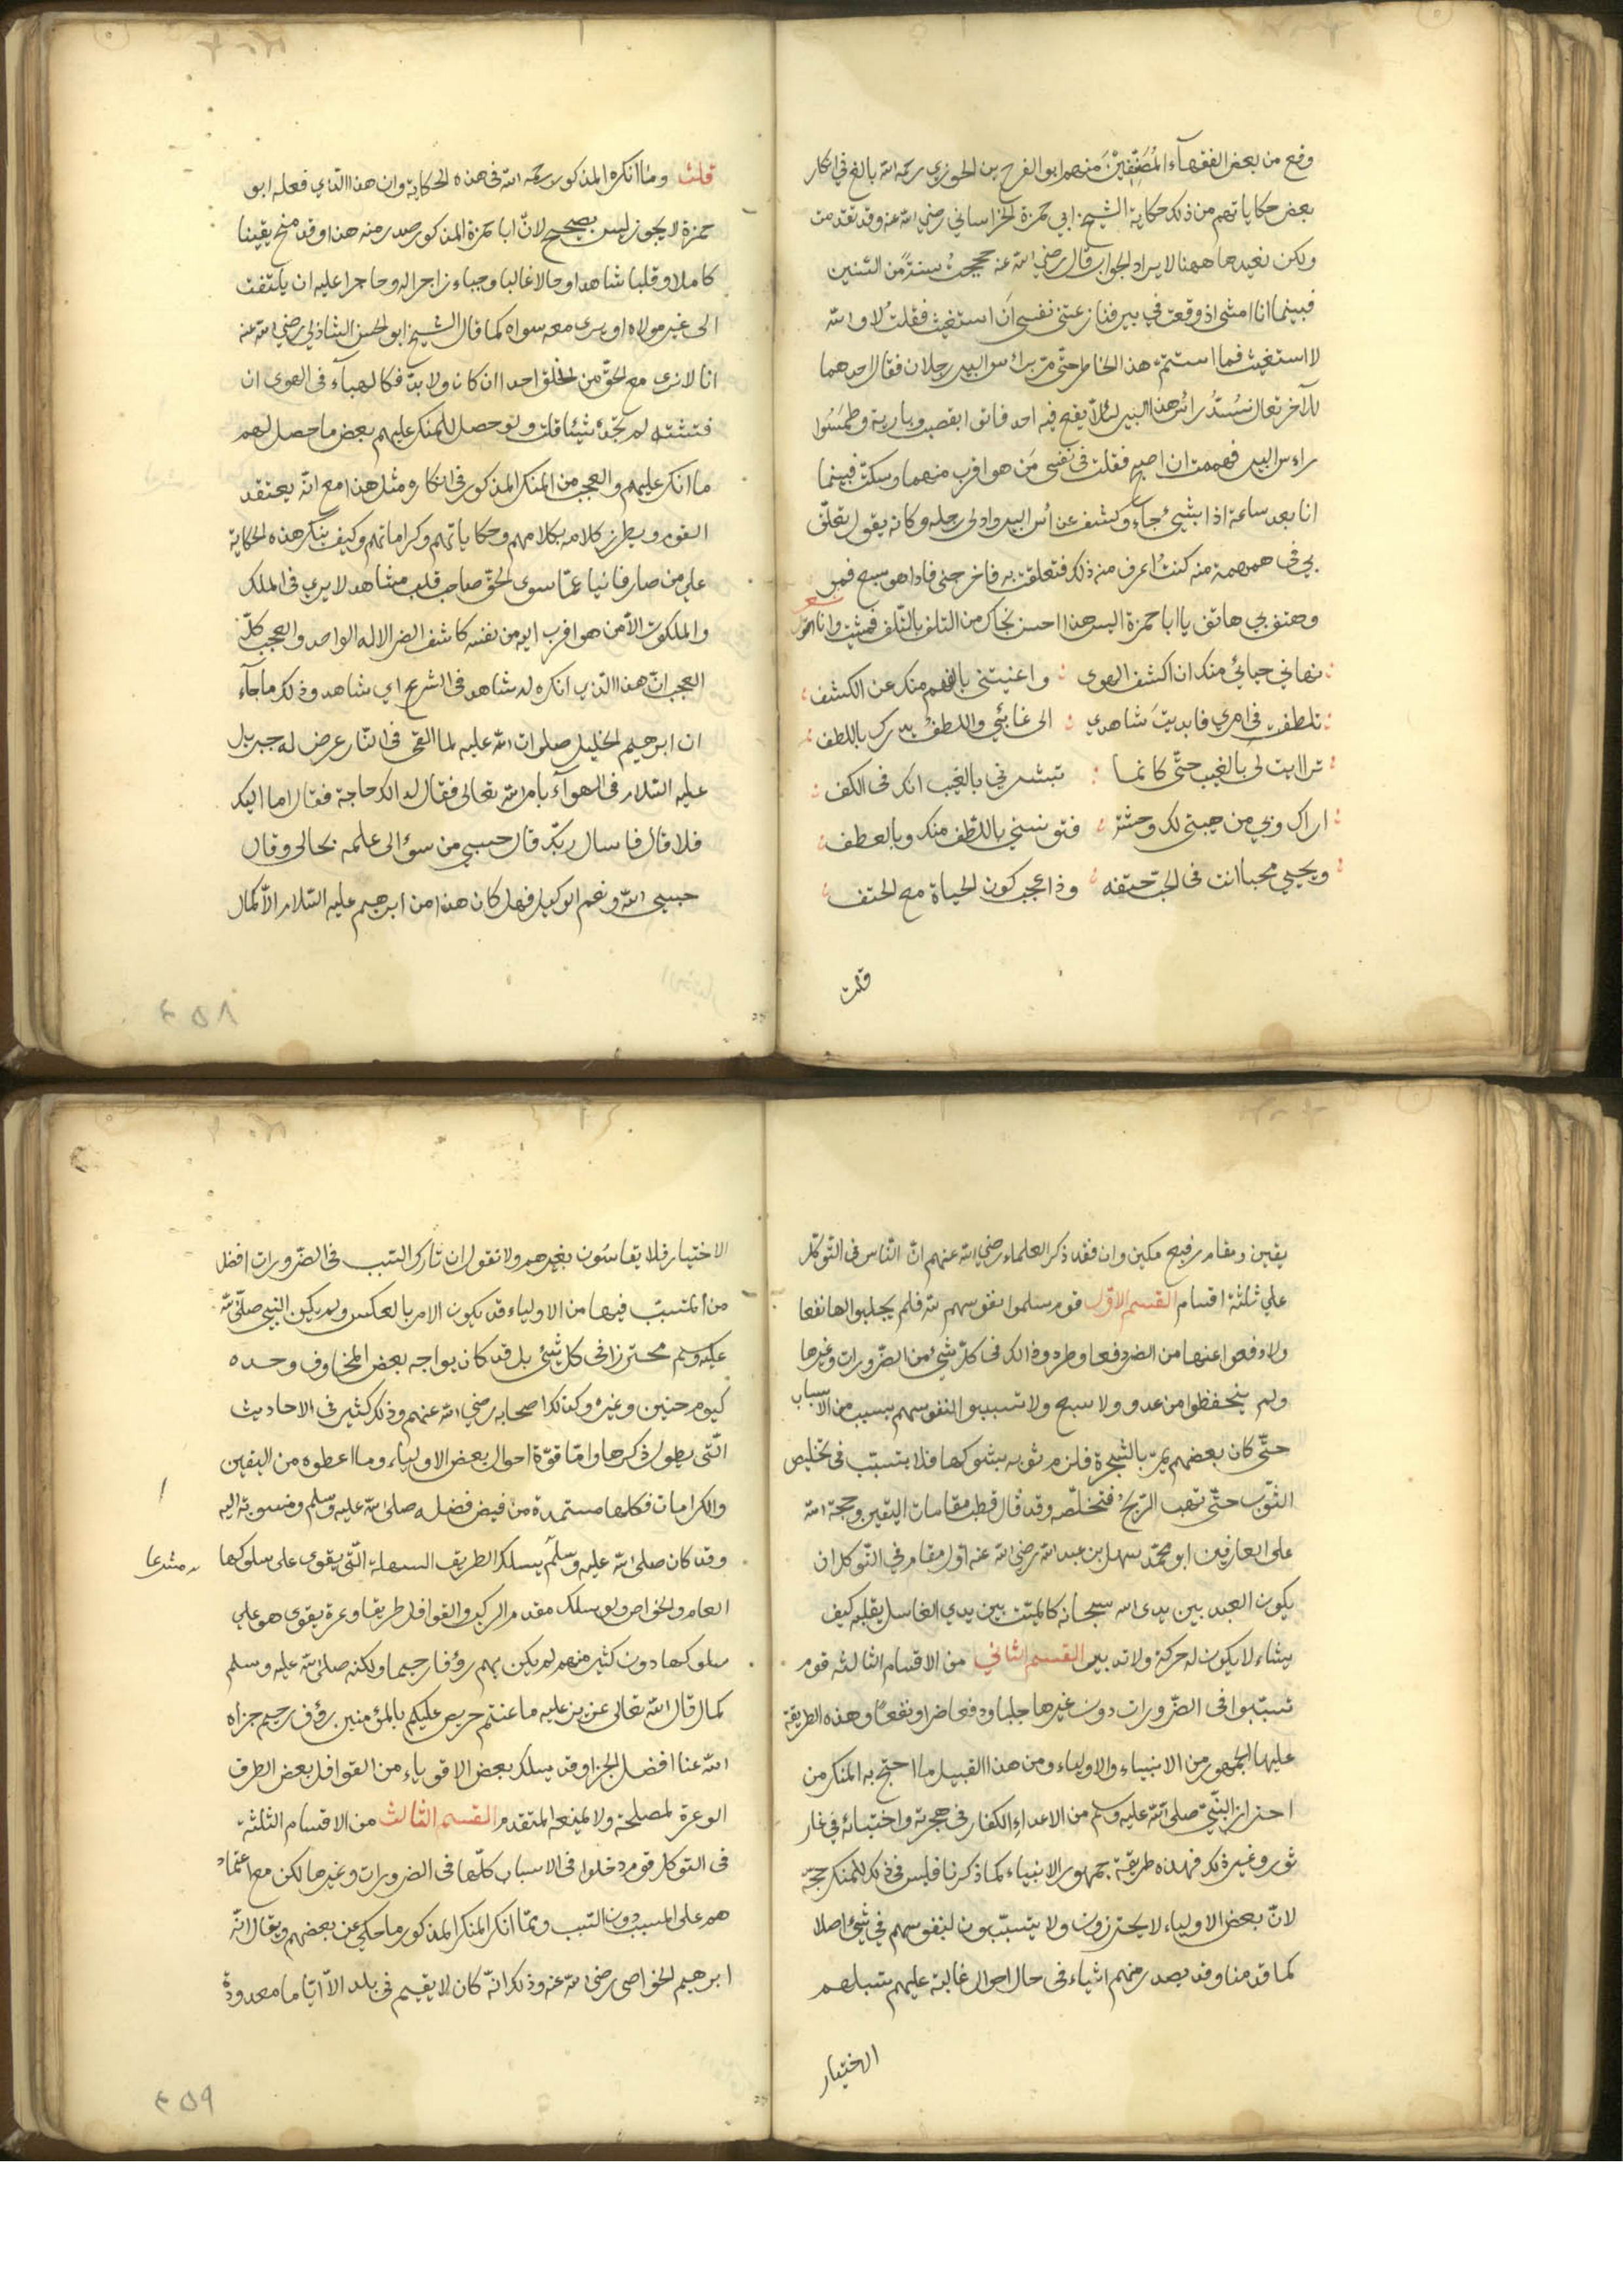 وقع من بعض الفقهآء المُصَنِّفِيْنَ منهم ابو الفرج بن الجوزي رحمه الله بالغ في انكار
بعض حكاياتهم من ذلك حكاية الشيخ ابي حمزة الخراساني رضي الله عنه وقد تقدمت
ولكن نعيدها ههنا لايراد الجواب قال رضي الله عنه حججت سنة من السنين
فبينما انا امشي اذ وقعت في بير فنازعتني نفسي اَن استغيث فقلت لا والله
لا استغيث فما استتم هذا الخاطر حتّى مرّ براس البير رجلان فقال احدهما
للآخر تعال نسُدُّ رائس هذا البير لئلّا يقع فيه احد فاتوا بقصب وبارية وطَمَسُوا
راءس البير فهممت ان اصيح فقلت في نفسي مَن هو اقرب منهما وسكتّ فبينما
انا بعد ساعة اذا بشيء جاء وكشف عن راس البير وادلى رجله وكانه يقول تعلّق
بي في همهمة منه كنتُ اعرف منه ذلك فتعلقت به فاخرجني فاذا هو سبع فمر
وهتف بي هاتف يا ابا حمزة اليس هذا احسن نجاك من التلف بالتّلف فمشيت وانا اقول شعر
نهاني حيائي منك ان اكشف الهوى ؛ واغنيتني بالفهم منك عن الكشف
تلطفت في امري فابديتَ شاهدي ؛ الى غائبي واللطفُ يدرك باللطف
تراايت لي بالغيب حتّى كانما ؛ تبشرني بالغيب انك في الكف
اراك وبي من هيبتي لك وحشة ؛ فتونسني باللّطف منك وبالعطف
ويحيي محبا انت في الحبّ حتفه ؛ وذا عجب كون الحياة مع الحتف
قلت
قلتُ وما انكره المذكور رحمه الله في هذه الحكاية وان هذا الّذي فعله ابو
حمزة لا يجوز ليس بصحيح لانّ ابا حمزة المذكور صدر منه هذا وقد منح يقينا
كاملا وقلبا شاهدا وحالا غالبا وحياء زاجرا له وحاجرا عليه ان يلتفت
الى غير مولاه او يرى معه سواه كما قال الشيخ ابو الحسن الشاذلي رضي الله عنه
انا لا نرى مع الحقّ من الخلق احدا ان كان ولا بدّ فكالهبآء في الهوى ان
فتشته لم تجده شيئا قلت ولو حصل للمنكر عليهم بعض ما حصل لهم
ما انكر عليهم والعجب من المنكر المذكور في انكاره مثل هذا مع انّه يعتقد
القوم ويطرز كلامه بكلامهم وحكاياتهم وكراماتهم وكيف ينكر هذه الحكاية
على من صار فانيا عمّا سوى الحقّ صاحب قلب مشاهد لا يرى في الملك
والملكوت الّا من هو اقرب اليه من نفسه كاشف الضر الاله الواحد والعجب كلّ
العجب انّ هذا الّذي انكره له شاهد في الشرع اي شاهد وذلك ما جآء
ان ابرهيم الخليل صلوات الله عليه لما القي في النّار عرض له جبريل
عليه السّلام في الهوآء بامر الله تعالى فقال له الك حاجة فقال اما اليك
فلا قال فاسال ربّك قال حسبي من سؤالي علمه بحالي وقال
حسبي الله ونعم الوكيل فهل كان هذا من ابرهيم عليه السّلام الّا كمال
٤٥٨
يقين ومقام رفيع مكين وان فقد ذكر العلماء رضي الله عنهم انّ النّاس في التّوكّل
على ثلثة اقسام القسم الاوّل قوم سلموا نفوسهم لله فلم يجلبوا لها نفعا
ولا دفعوا عنها من الضر دفعا وطردوا ذلك في كلّ شيء من الضّرورات وغيرها
ولم يتحفظوا من عدو ولا سبع ولا تسببوا لنفوسهم بسبب من الاسباب
حتّى كان بعضهم يمرّ بالشجرة فلزم ثوبه بشوكها فلا يتسبّب في تخليص
الثّوب حتّى تهب الرّيح فتخلّصه وقد قال قطب مقامات اليقين وحجة الله
على العارفين ابو محمّد سهل بن عبد الله رضي الله عنه اوّل مقام في التّوكل ان
يكون العبد بين يدى الله سبحانه كالميّت بين يدي الغاسل يقلبه كيف
يشاء لا يكون له حركة ولا تدبير القسم الثاني من الاقسام الثالثه قوم
تسبّبوا في الضّرورات دون غيرها جلبا ودفعا ضرا ونفعًا وهذه الطريقة
عليها الجمهور من الانبياء والاولياء ومن هذا القبيل ما احتج به المنكر من
احتراز النّبيّ صلى الله عليه وسلم من الاعداء الكفار في هجرته واختبائه في غار
ثور وغير ذلك فهذه طريقة جمهور الانبياء كما ذكرنا فليس في ذلك للمنكر حجّة
لانّ بعض الاولياء لا يحترزون ولا يتسبّبون لنفوسهم في شيء اصلا
كما قدمنا وقد يصدر منهم اشياء في حال احوال غالبة عليهم تسلبهم
الاختيار
الاختيار فلا يقاسُون بغيرهم ولا نقول ان تارك السّبب في الضّرورات افضل
من المتسبّب فيها من الاولياء قد يكون الامر بالعكس ولم يكن النبي صلّى الله
عليه وسلم محترزا في كل شيء بل قد كان يواجه بعض المخاوف وحده
كيوم حنين وغيره وكذلك اصحابه رضي الله عنهم وذلك كثير في الاحاديث
الّتي يطول ذكرها وامّا قوّة احوال بعض الاولياء وما اعطوه من اليقين
والكرامات فكلها مستمدة من فيض فضله صلى الله عليه وسلم ومنسوبة اليه
وقد كان صلى الله عليه وسلّم يسلك الطريق السهلة الّتي يقوى على سلوكها
العام والخاص ولو سلك مقدم الركب والقوافل طريقا وعرة يقوى هو على
سلوكها دون كثير منهم لم يكن بهم رؤفا رحيما ولكنه صلى الله عليه وسلم
كما قال الله تعالى عزيز عليه ما عنتم حريص عليكم بالمؤمنين رؤف رحيم جزاه
الله عنا افضل الجزا وقد يسلك بعض الاقوياء من القوافل بعض الطرق
الوعرة لمصلحة ولا يمنعه المتقدم القسم الثالث من الاقسام الثلثة
في التوكل قوم دخلوا في الاسباب كلّها في الضرورات وغيرها لكن مع اعتماد
هم على المسبب دون السّبب وممّا انكر المنكر المذكور ما حكي عن بعضهم ويقال انّه
ابرهيم الخواص رضي الله عنه وذلك انّه كان لا يقيم في بلد الّا ايّاما معدودة
٤٥٩